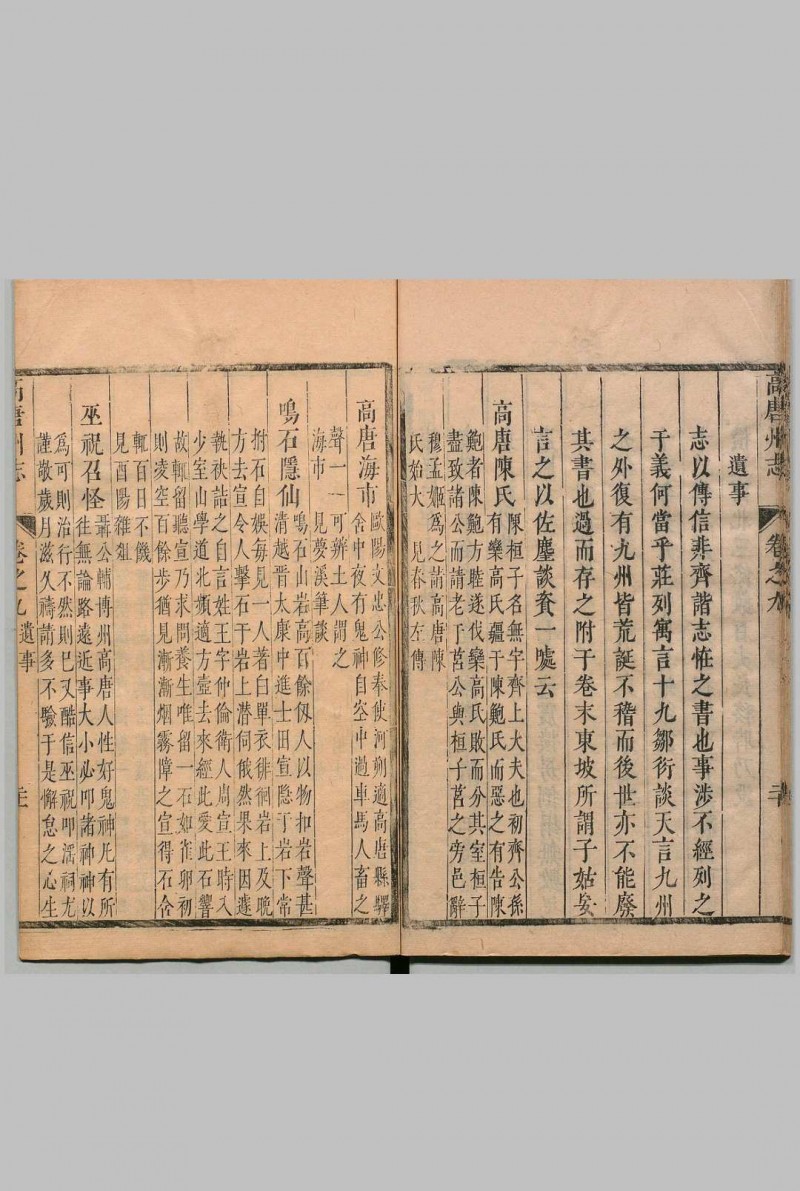 高唐州志 卷之九
遺事
志以傳信非齊諧志恠之書也事涉不經列之
于義何當乎莊列寓言十九鄒衍談天言九州
之外復有九州皆荒誕不稽而後世亦不能廢
其書也過而存之附于卷末東坡所謂子姑妄
言之以佐麈談奚一噱云
高唐陳氏 陳桓子名無宇齊上大夫也初齊公孫
有欒高氏疆于陳鮑氏而惡之有告陳
鮑者陳鮑方睦遂伐欒高氏敗而分其室桓子
盡致諸公而請老于莒公與桓子莒之旁邑辭
穆孟姬爲之請高唐陳
氏始大 見春秋左傳
高唐海市 歐陽文忠公修奉使河朔適高唐縣驛
舍中夜有鬼神自空中過車馬人畜之
聲一一可辨土人謂之
海市 見夢溪筆談
鳴石隱仙 鳴石山岩高百餘仭人以物扣岩聲甚
清越晉太康中進士田宣隐于岩下常
拊石自娛每見一人著白單衣徘徊岩上及曉
方去宣令人擊石于岩上潜伺俄然果來因遽
執袂詰之自言姓王字仲倫衛人周宣王時入
少室山學道北頻適方壺去來經此愛此石響
故輒留聽宣乃求問養生唯留一石如雀卵初
則凌空百餘步猶見漸漸烟霧障之宣得石含
輒百日不饑
見酉陽雜俎
巫祝召怪 聶公輔博州高唐人性好鬼神凡有所
往無論路遠近事大小必叩諸神神以
爲可則治行不然則巳又酷信巫祝叩淫祠尤
謹敬歲月滋久禱請多不驗于是懈怠之心生
高唐州志 卷之九 遺事